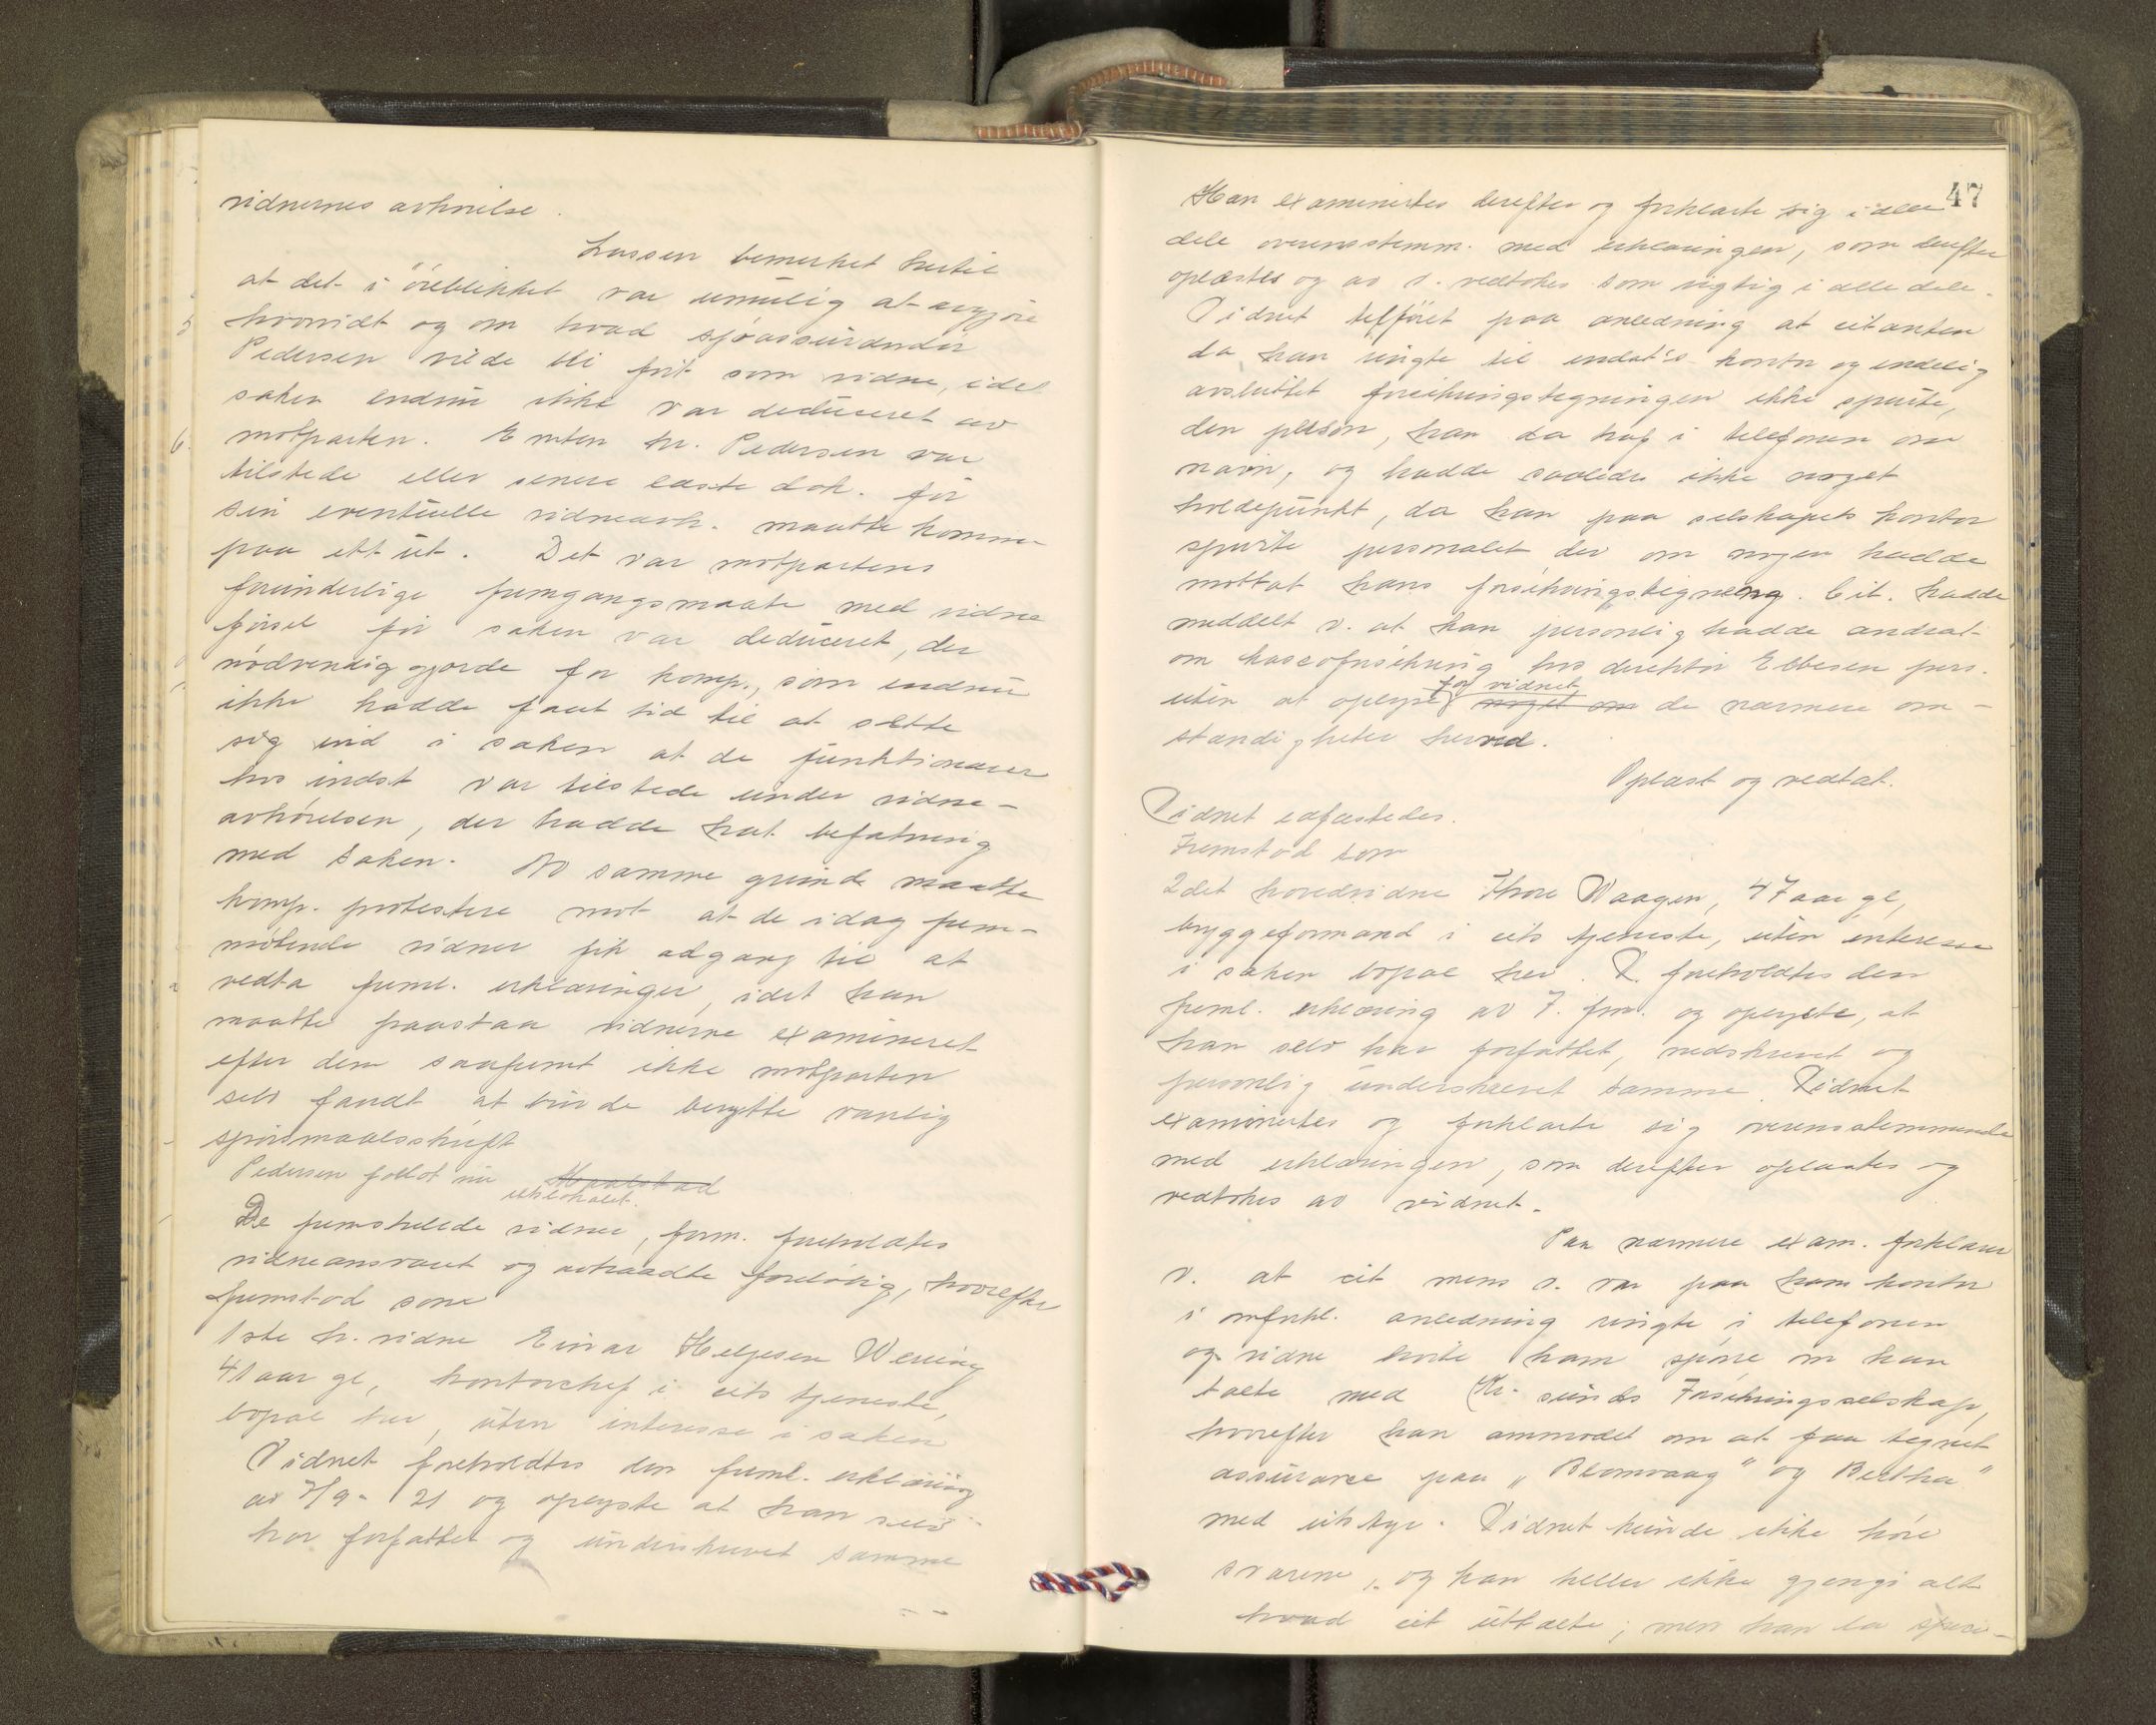 vidnernes avhørelse.
Lassen bemerket hertil
at det i øieblikket var umulig at avgjøre
hvorvidt og om hvad sjøassurandør
Pedersen vilde bli ført som vidne, idet
saken endnu ikke var deduceret av
motparten. Enten hr. Pedersen var
tilstede eller senere læste dok. før
sin eventuelle vidneavh. maatte komme
paa ett ut. Det var motpartens
forunderlige fremgangsmaate med vidne
førsel før saken var deduceret, der
nødvendiggjorde for komp., som endnu
ikke hadde faat tid til at sætte
sig ind i saken at de funktionærer
hos indst var tilstede under vidne-
avhørelsen, der hadde hat befatning
med saken. Av samme grund maatte
komp. protestere mot at de idag frem-
møtende vidner fik adgang til at
vedta freml. erklæringer, idet han
maatte paastaa vidnerne examineret
efter dem saafremt ikke motparten
selv fandt at burde benytte vanlig
spørsmaalsskrift
Pedersen forlot nu
retslokalet.
De fremstillede vidner, form. foreholdtes
vidneansvaret og uttraadte foreløbig, hvorefter
fremstod som
1ste h. vidne Einar Helgesen Wering
41 aar gl, kontorchef i cits tjeneste,
bopæl her, uten interesse i saken
Vidnet foreholdtes den freml. erklæring
av 7/9- 21 og oplyste at han selv
har forfattet og underskrevet samme
47
Han examinertes derefter og forklarte sig i alle
dele overensstemm. med erklæringen, som derefter
oplæstes og av v. vedtokes som rigtig i alle dele.
Vidnet tilføiet paa anledning at citanten
da han ringte til indst's kontor og endelig
avsluttet forsikringstegningen ikke spurte,
den person, han da traf i telefonen om
navn, og hadde saaledes ikke noget
holdepunkt, da han paa selskapets kontor
spurte personalet der om nogen hadde
mottat hans forsikringstegning. Cit. hadde
meddelt v. at han personlig hadde andrat
om kascoforsikring hos direktør Ebbesen pers.
uten at oplyse for vidnet noget om de nærmere om-
stændigheter herved.
Oplæst og vedtat.
Vidnet edfæstedes.
Fremstod som
2det hovedvidne Thore Waagen, 47 aar gl,
bryggeformand i cits tjeneste, uten interesse
i saken bopæl her. V. foreholdtes den
freml. erklæring av 7. frm. og oplyste, at
han selv har forfattet, nedskrevet og
personlig underskrevet samme. Vidnet
examinertes og forklarte sig overensstemmende
med erklæringen, som derefter oplæstes og
vedtokes av vidnet.
Paa nærmere exam. forklarer
v. at cit mens v. var paa hans kontor
i omforkl. anledning ringte i telefonen
og vidne hørte ham spørre om han
talte med Kr.sunds Forsikringsselskap,
hvorefter han anmodet om at faa tegnet
assurance paa „Blomvaag" og Bertha"
med utstyr. Vidnet kunde ikke høre
svarene, og kan heller ikke gjengi alt
hvad cit uttalte; men han la